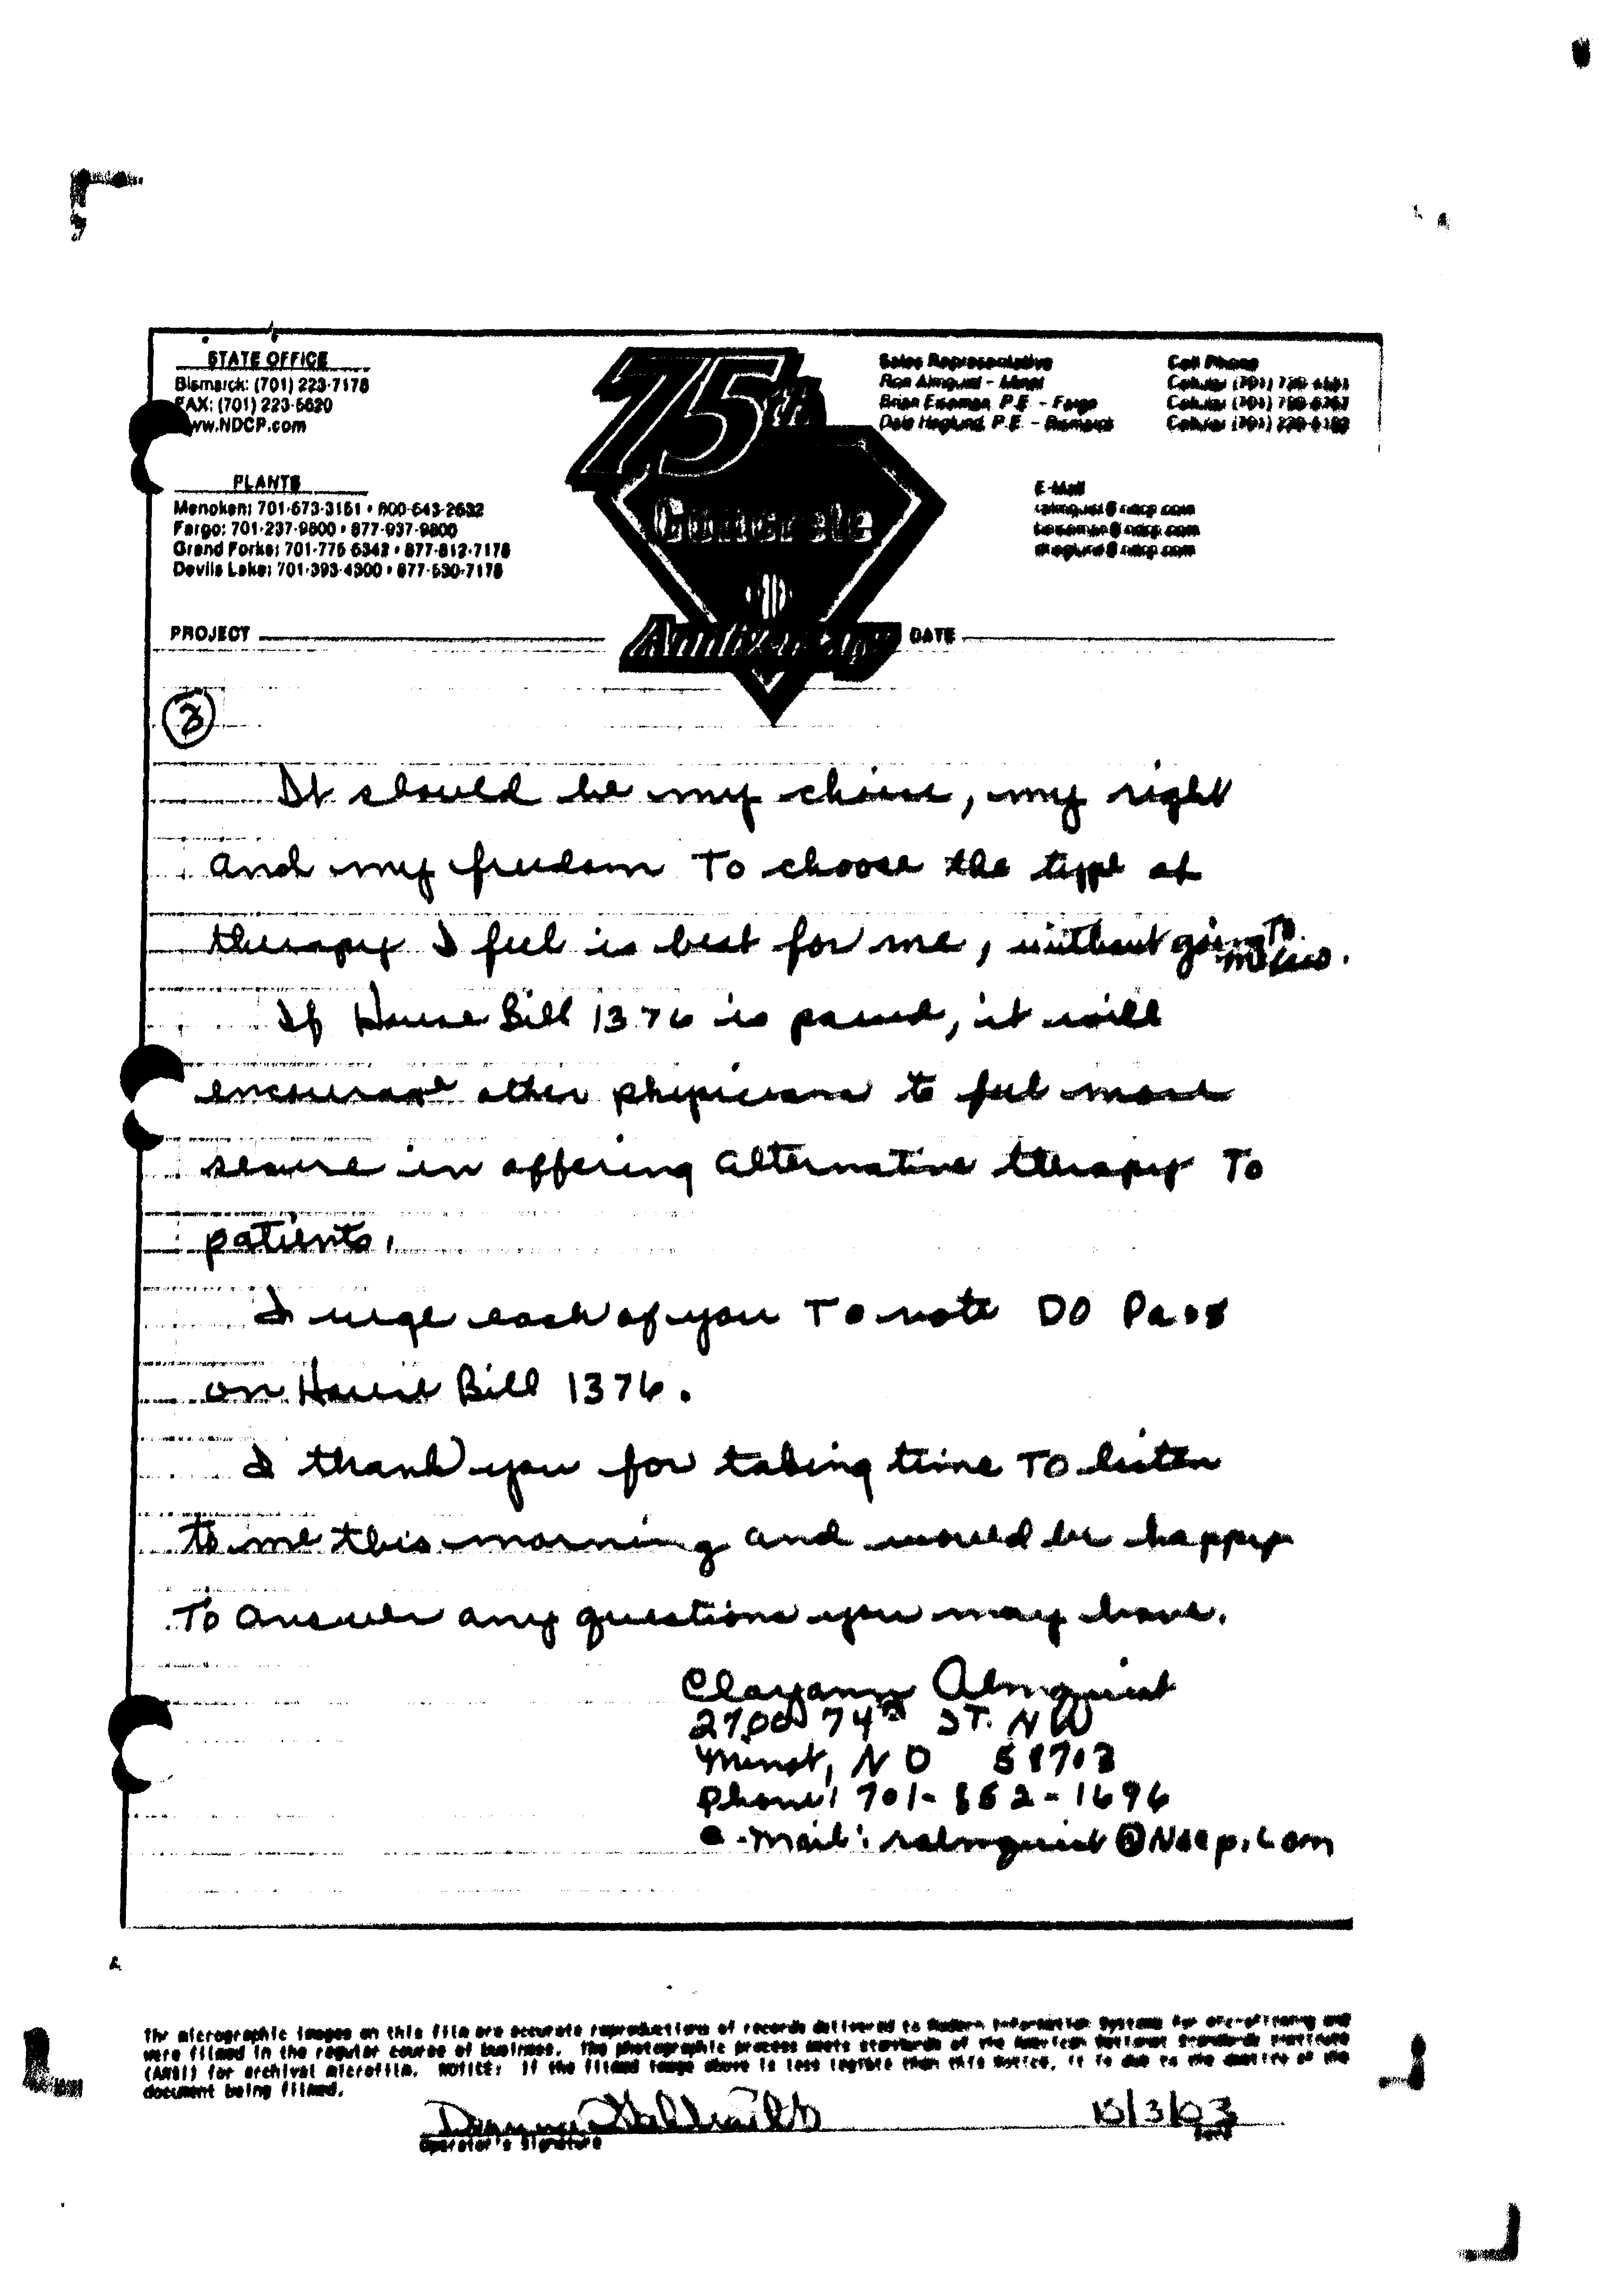 STATE OFFICE
Bismarck: (701) 223-7178
FAX: (701) 223-5620
www.NDCP.com
PLANTS
Menoken: 701-673-3151 • 800-643-2632
Fargo: 701-237-9800 • 877-937-9800
Grand Forks: 701-775-6342 • 877-812-7178
Devils Lake: 701-393-4300 • 877-530-7178
75th
Concrete
Anniversary
Sales Representative
Ron Almquist - Minot
Brian Eiseman, P.E. - Fargo
Dale Haglund, P.E. - Bismarck
Cell Phone
Cellular (701)
Cellular (701)
Cellular (701)
E-Mail
ralmquist@ndcp.com
beiseman@ndcp.com
dhaglund@ndcp.com
PROJECT
DATE
3
It should be my choice, my right
and my freedom To choose the type of
therapy I feel is best for me, without going To Mexico.
If House Bill 1376 is passed, it will
encourage other physicians to feel more
secure in offering alternative therapy To
patients.
I urge each of you To vote DO Pass
on House Bill 1376.
I thank you for taking time To listen
to me this morning and would be happy
To answer any questions you may have.
Clayann Almquist
2700 74th ST. NW
Minot, ND 58703
Phone: 701-852-1696
e-mail: ralmquist@Ndcp.com
The micrographic images on this film are accurate reproductions of records delivered to Modern Information Systems for microfilming and
were filmed in the regular course of business. The photographic process meets standards of the American National Standards Institute
(ANSI) for archival microfilm. NOTICE: If the filmed image above is less legible than this Notice, it is due to the quality of the
document being filmed.
Operator's Signature
10/3/03
Date